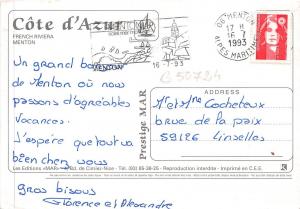 Côte d'Azur
FRENCH RIVIERA
MENTON
MENTON
06 MENTON
17 H
16 7
1993
ALPES MARITIMES
16-7-93
G 50724
Un grand bonjour
de Menton où nous
passons d'agréables
vacances.
J'espère que tout va
bien chez vous
Gros bisous
Florence et Alexandre
Prestige MAR
ADDRESS
Mr et Mme Cocheteux
brue de la paix
59126 Linselles
Les Editions «MAR» Bd. de Cimiez-Nice - Tél. (93) 85-38-25 - Reproduction interdite - Imprimé en C.E.E.